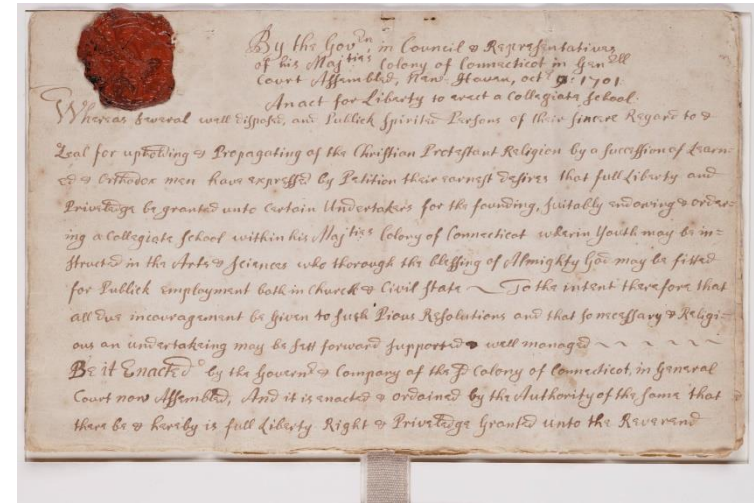 By the Govrn in Council & Representatives
of his Majties Colony of Connecticot in Genrll
Court Assembled, New-Haven, octr 9: 1701
An act for Liberty to erect a Collegiate School.
Whereas Several well disposed, and Publick Spirited Persons of their Sincere Regard to &
Zeal for upholding & Propagating of the Christian Protestant Religion by a succession of Learn-
ed & Orthodox men have expressed by Petition their earnest desires that full Liberty and
Priveledge be granted unto Certain Undertakers for the founding, suitably endowing & order-
ing a Collegiate School within his Majties Colony of Connecticot wherin Youth may be in-
structed in the Arts & Sciences who thorough the blessing of Almighty God may be fitted
for Publick employment both in Church & Civil State ~ To the intent therefore that
all due incouragement be Given to such Pious Resolutions and that so necessary & Religi-
ous an undertakeing may be sett forward supported & well managed ~ ~ ~ ~ ~
Be it Enacted by the Governr & Company of the sd Colony of Connecticot, in General
Court now Assembled, And it is enacted & ordained by the Authority of the same that
there be & hereby is full Liberty Right & Priveledge Granted unto the Reverend